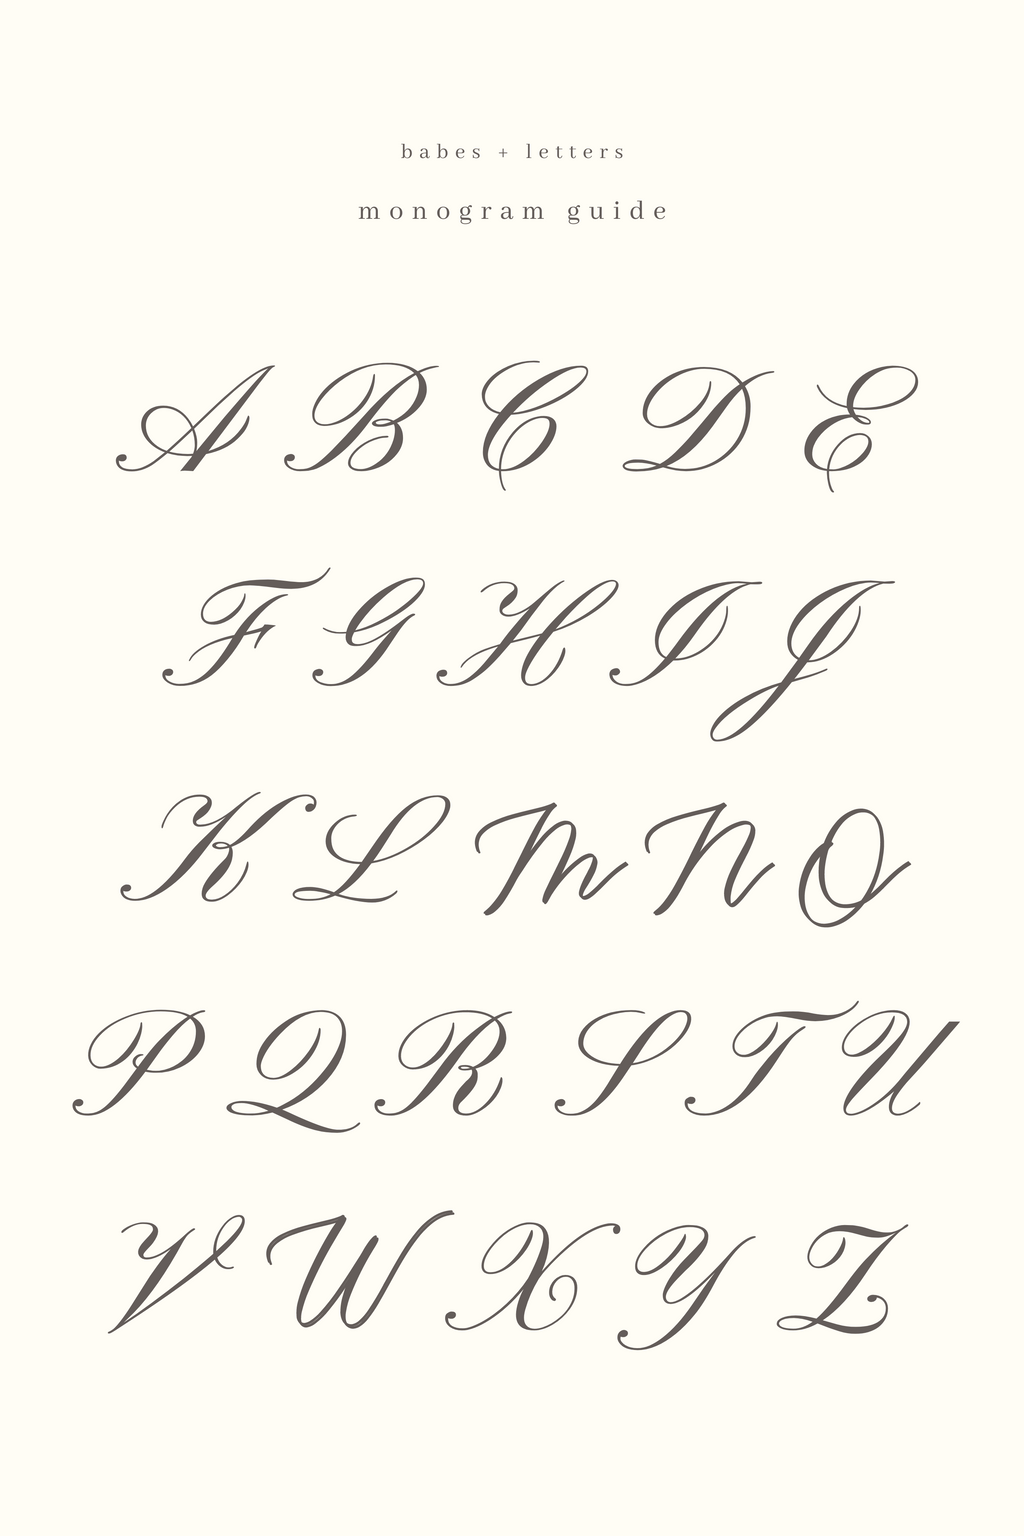 babes + letters
monogram guide
A B C D E
F G H I J
K L M N O
P Q R S T U
V W X Y Z